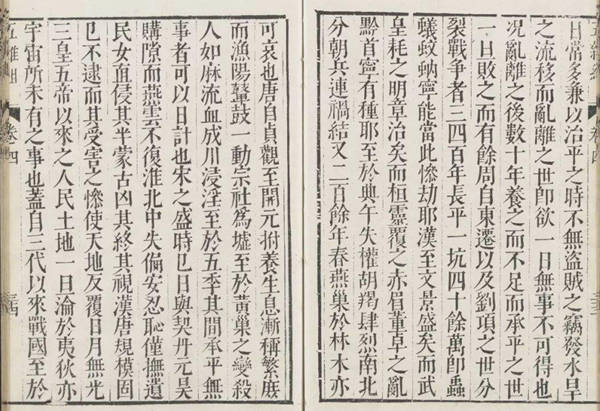 日常多兼以治平之時不無盜賊之竊發水旱
之流移而亂離之世卽欲一日無事不可得也
況亂離之後數十年養之而不足而承平之世
一日敗之而有餘周自東遷以及劉項之世分
裂戰爭者三四百年長平一坑四十餘萬卽螽
蟻蚊蚋寧能當此慘劫耶漢至文景盛矣而武
皇耗之明章治矣而桓靈覆之赤眉董卓之亂
黔首寧有種耶至於典午失權胡羯肆烈南北
分朝兵連禍結又二百餘年春燕巢於林木亦
可哀也唐自貞觀至開元拊養生息漸稱繁庶
而漁陽鼙鼓一動宗社為墟至於黃巢之變殺
人如麻流血成川浸淫至於五季其間承平無
事者可以日計也宋之盛時已與契丹元昊
購隙而燕雲不復淮北中失偏安忍恥僅撫遺
民女直侵其半蒙古凶其終其視漢唐規模固
已不逮而其受害之慘使天地反覆日月無光
三皇五帝以來之人民土地一旦淪於夷狄亦
宇宙所未有之事也蓋自三代以來戰國至於
五雜組 卷四